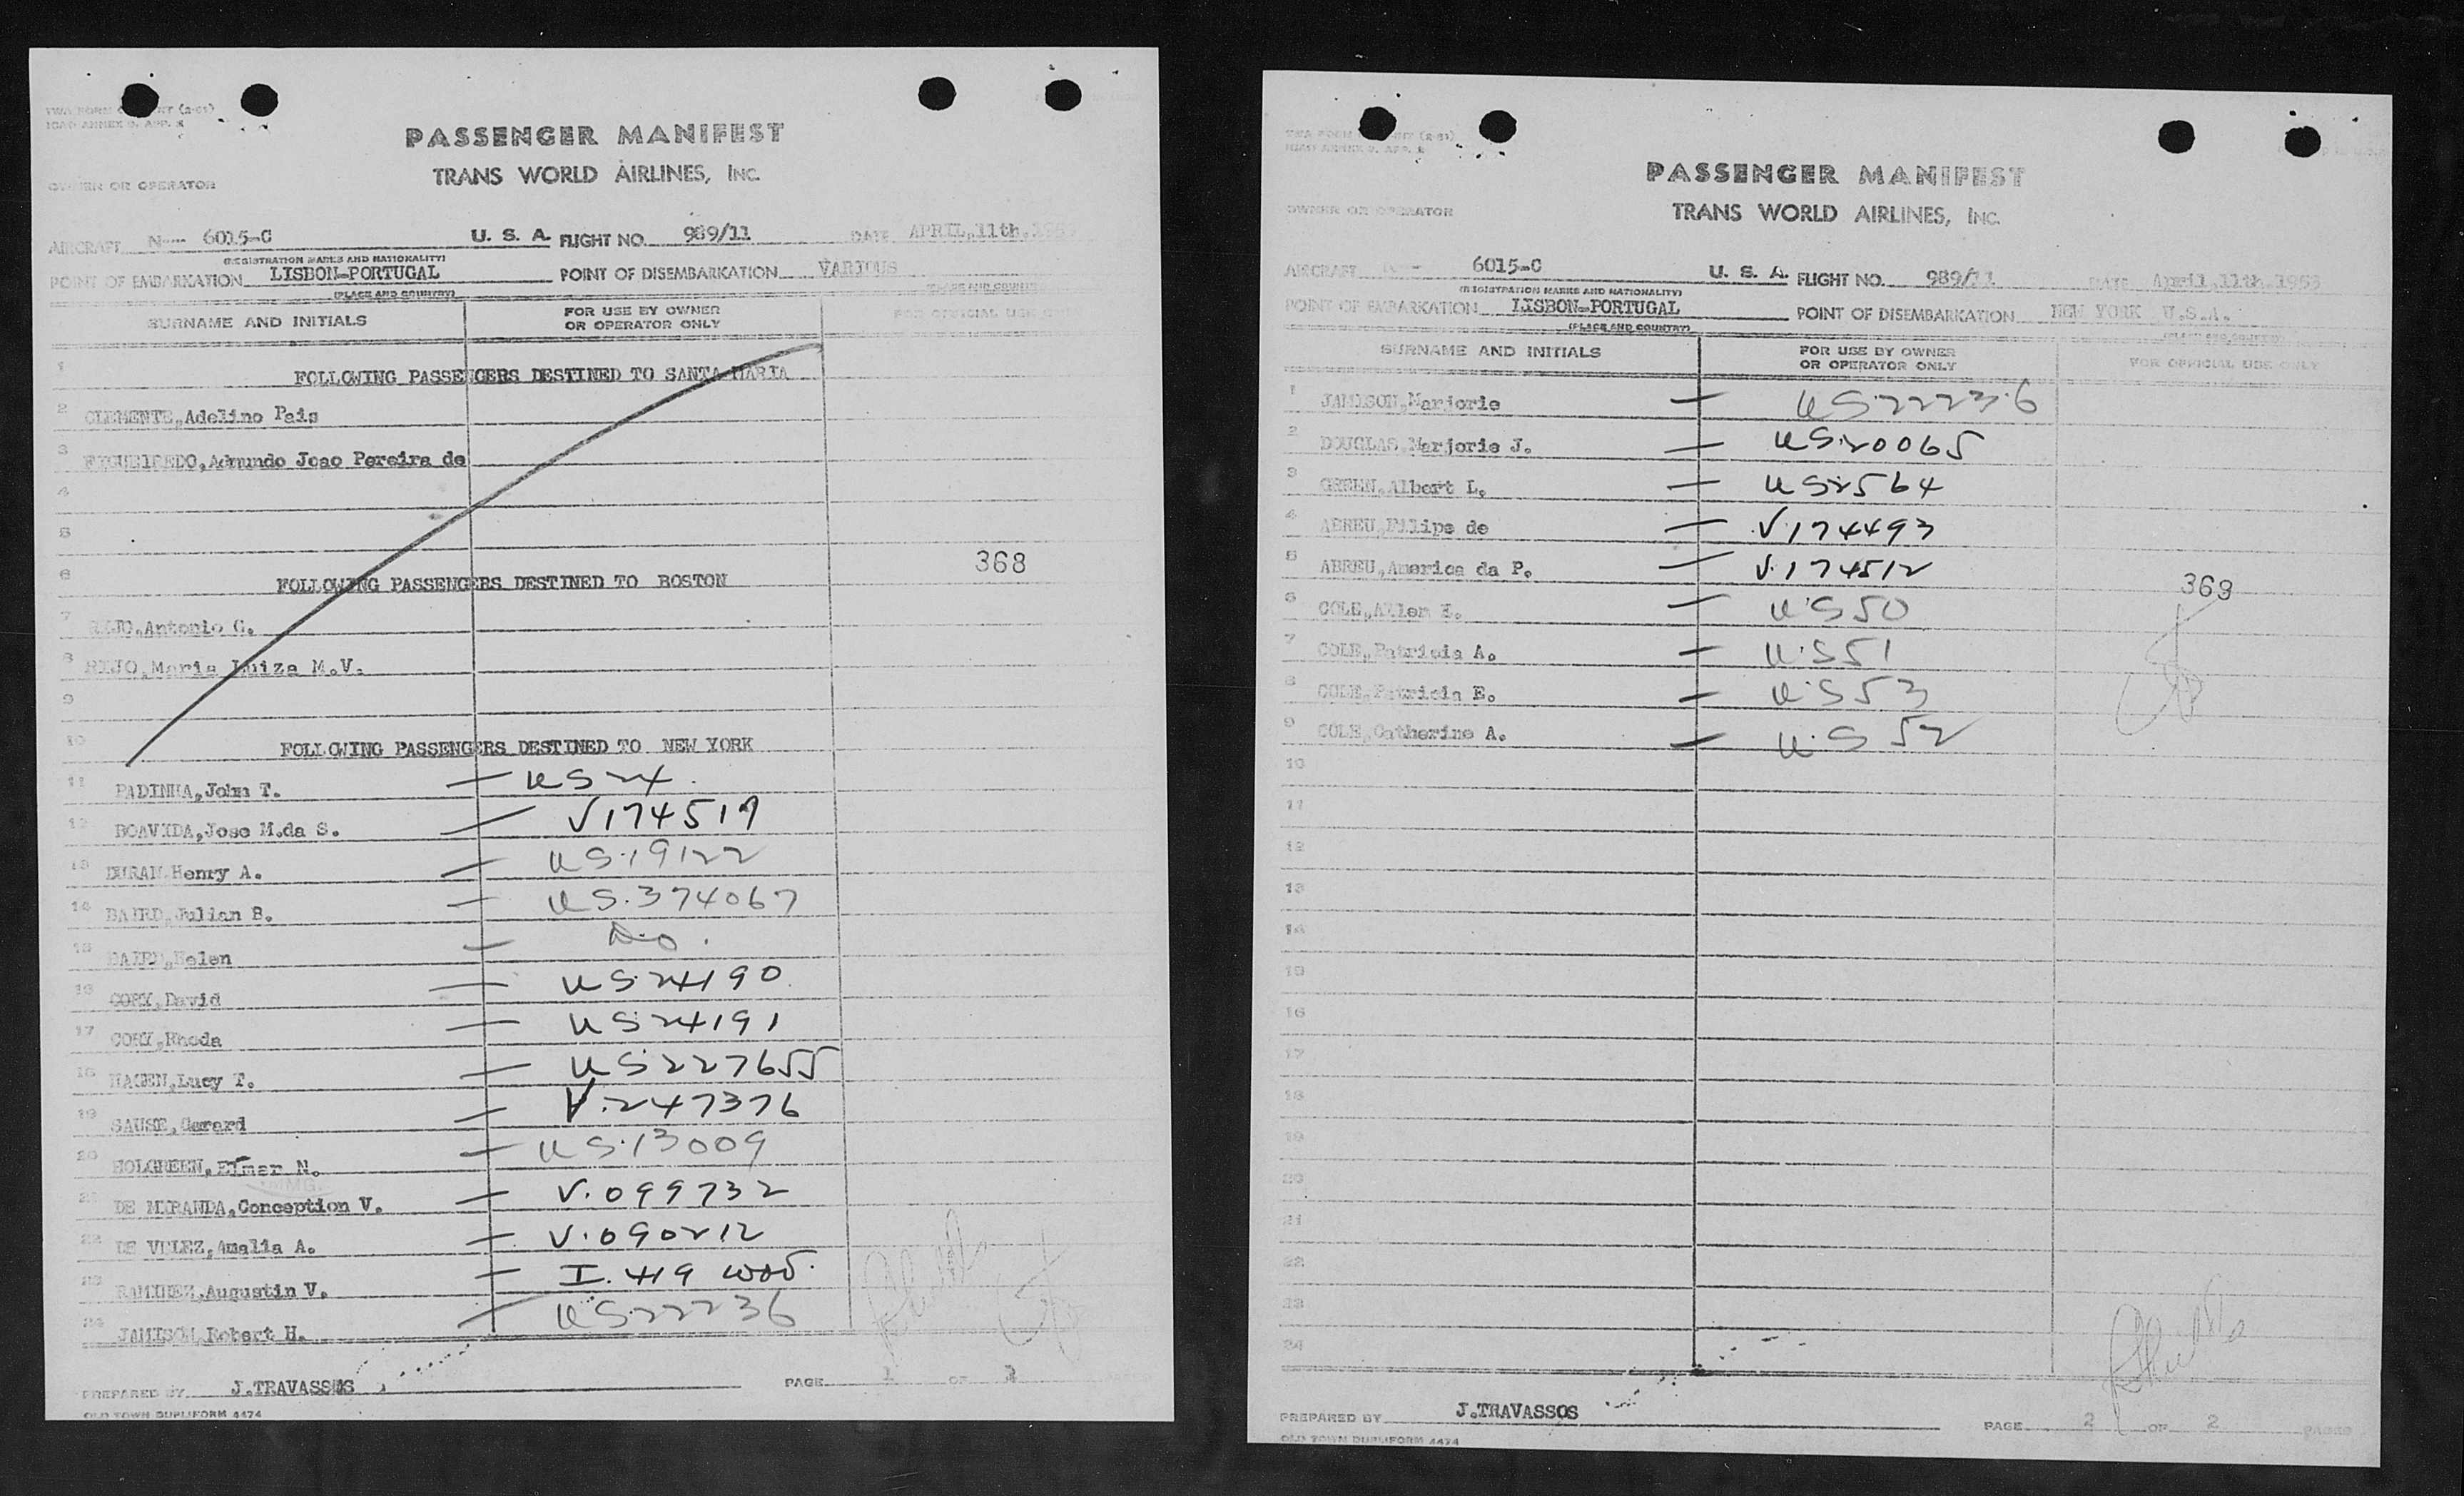 PASSENGER MANIFEST
TRANS WORLD AIRLINES, INC.
OWNER OR OPERATOR
AIRCRAFT N--- 6015-C U. S. A. FLIGHT NO. 989/11 DATE APRIL,11th,
(REGISTRATION MARKS AND NATIONALITY)
POINT OF EMBARKATION LISBON-PORTUGAL POINT OF DISEMBARKATION VARIOUS
(PLACE AND COUNTRY)
SURNAME AND INITIALS FOR USE BY OWNER OR OPERATOR ONLY FOR OFFICIAL USE
1 FOLLOWING PASSENGERS DESTINED TO SANTA MARIA
2 CLEMENTE,Adelino Pais
3 FIGUEIREDO,Admundo Joao Pereira de
4
5
368
6 FOLLOWING PASSENGERS DESTINED TO BOSTON
7 RIJO,Antonio C.
8 RIJO,Maria Luiza M.V.
9
10 FOLLOWING PASSENGERS DESTINED TO NEW YORK
11 PADINHA,John T. — US 24
12 BOAVIDA,Jose M.da S. — V174519
13 DURAN Henry A. — US.19122
14 BAIRD,Julian B. — US.374067
15 BAIRD,Helen — Do.
16 CORY,David — US.24190
17 CORY,Rhoda — US.24191
18 HAGEN,Lucy T. — US.227655
19 SAUSE,Gerard — V.247376
20 HOLGREEN,Elmer N. — US.13009
21 DE MIRANDA,Conception V. — V.099732
22 DE VELEZ,Amalia A. — V.090212
23 RAMIREZ,Augustin V. — I.419
24 JAMISON,Robert H. — US22236
PREPARED BY J.TRAVASSOS PAGE 1 OF
OLD TOWN DUPLIFORM 4474
PASSENGER MANIFEST
TRANS WORLD AIRLINES, INC.
OWNER OR OPERATOR
AIRCRAFT 6015-C U. S. A. FLIGHT NO. 989/11 DATE April,11th,1953
(REGISTRATION MARKS AND NATIONALITY)
POINT OF EMBARKATION LISBON-PORTUGAL POINT OF DISEMBARKATION NEW YORK U.S.A.
(PLACE AND COUNTRY)
SURNAME AND INITIALS FOR USE BY OWNER OR OPERATOR ONLY FOR OFFICIAL USE ONLY
1 JAMISON,Marjorie — US.22236
2 DOUGLAS,Marjorie J. — US.20065
3 GREEN,Albert L. — US2564
4 ABREU,Filipe de — V.174493
5 ABREU,America da P. — V.174512
369
6 COLE,Allen E. — US 50
7 COLE,Patricia A. — US 51
8 COLE,Patricia E. — US 53
9 COLE,Catherine A. — US 52
10
11
12
13
14
15
16
17
18
19
20
21
22
23
24
PREPARED BY J.TRAVASSOS PAGE 2 OF 2 PAGES
OLD TOWN DUPLIFORM 4474